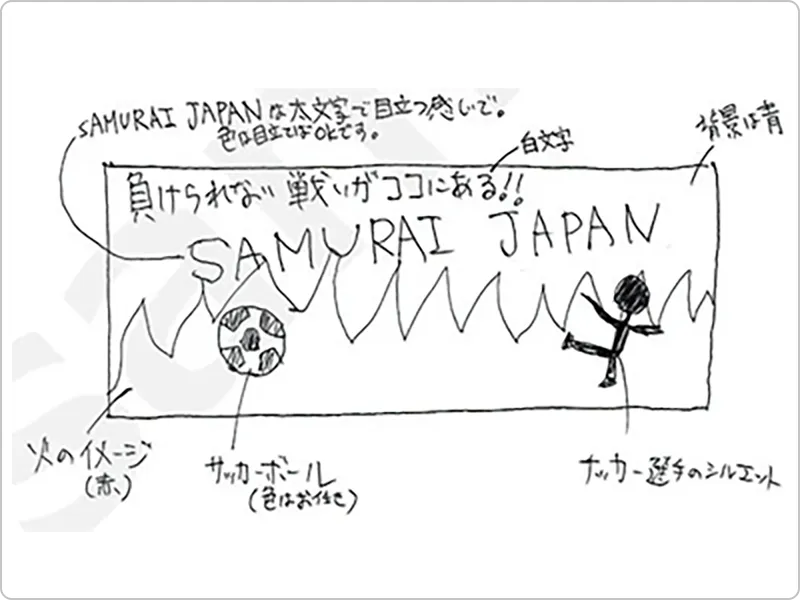 SAMURAI JAPANは太文字で目立つ感じで。
色は目立てばOKです。
白文字
背景は青
負けられない戦いがココにある!!
SAMURAI JAPAN
火のイメージ
(赤)
サッカーボール
(色はお任せ)
サッカー選手のシルエット